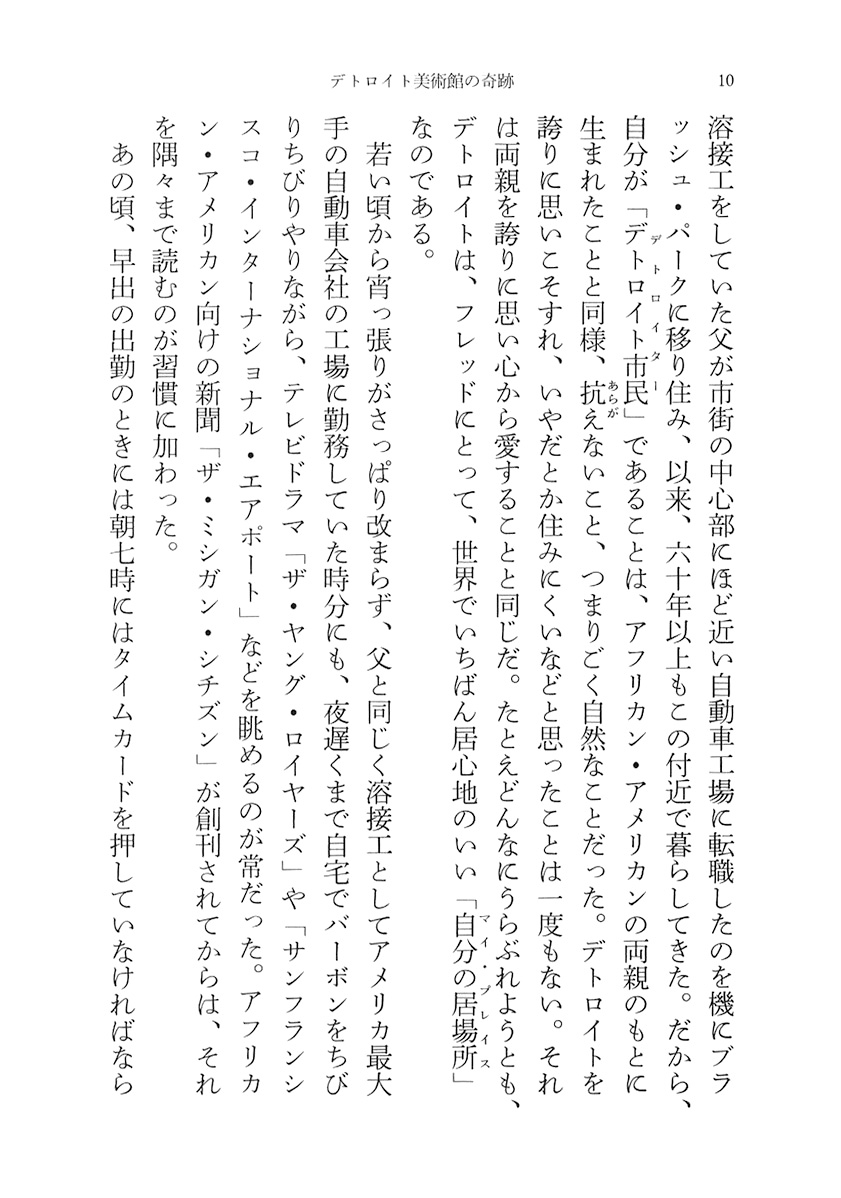 デトロイト美術館の奇跡
10
溶接工をしていた父が市街の中心部にほど近い自動車工場に転職したのを機にブラ
ッシュ・パークに移り住み、以来、六十年以上もこの付近で暮らしてきた。だから、
自分が「デトロイト市民」であることは、アフリカン・アメリカンの両親のもとに
デトロイター
生まれたことと同様、抗えないこと、つまりごく自然なことだった。デトロイトを
あらが
誇りに思いこそすれ、いやだとか住みにくいなどと思ったことは一度もない。それ
は両親を誇りに思い心から愛することと同じだ。たとえどんなにうらぶれようとも、
デトロイトは、フレッドにとって、世界でいちばん居心地のいい「自分の居場所」
マイ・プレイス
なのである。
若い頃から宵っ張りがさっぱり改まらず、父と同じく溶接工としてアメリカ最大
手の自動車会社の工場に勤務していた時分にも、夜遅くまで自宅でバーボンをちび
りちびりやりながら、テレビドラマ「ザ・ヤング・ロイヤーズ」や「サンフランシ
スコ・インターナショナル・エアポート」などを眺めるのが常だった。アフリカ
ン・アメリカン向けの新聞「ザ・ミシガン・シチズン」が創刊されてからは、それ
を隅々まで読むのが習慣に加わった。
あの頃、早出の出勤のときには朝七時にはタイムカードを押していなければなら